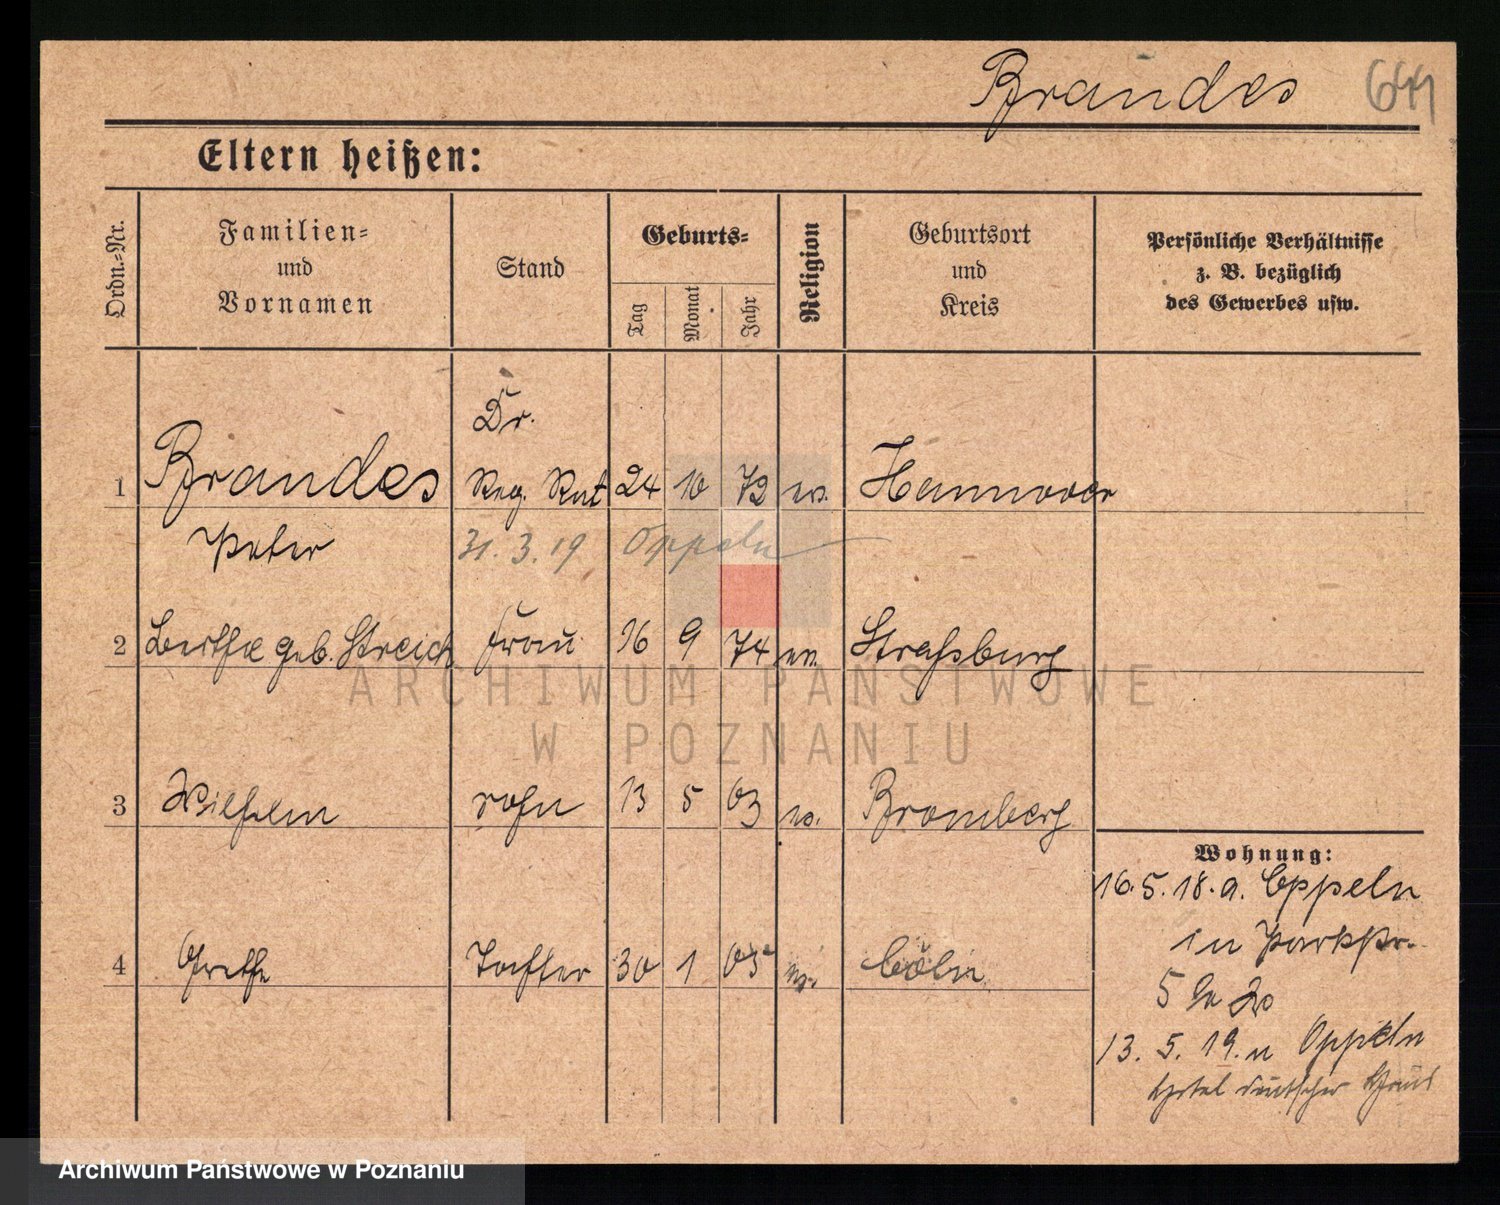 Brandes
Eltern heißen:
Ordn.-Nr.
Familien-
und
Vornamen
Stand
Geburts-
Tag
Monat
Jahr
Religion
Geburtsort
und
Kreis
Persönliche Verhältnisse
z. B. bezüglich
des Gewerbes usw.
Dr.
1 Brandes Reg. Rat 24 10 72 ev. Hannover
Peter 31.3.19 Oppeln
2 Berthe geb. Streich Frau 16 9 74 ev. Straßburg
3 Wilhelm Sohn 13 5 03 ev. Bromberg
Wohnung:
16.5.18. a. Oppeln
in Parkstr.
5
4 Grethe Tochter 30 1 05 ev. Cöln
13. 5. 19. n Oppeln
Hotel deutscher Haus
ARCHIWUM PAŃSTWOWE
W POZNANIU
Archiwum Państwowe w Poznaniu